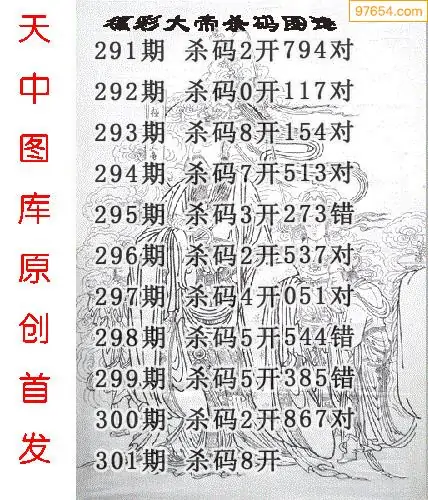 97654.com
福彩大帝杀码图迷
291期 杀码2开794对
292期 杀码0开117对
293期 杀码8开154对
294期 杀码7开513对
295期 杀码3开273错
296期 杀码2开537对
297期 杀码4开051对
298期 杀码5开544错
299期 杀码5开385错
300期 杀码2开867对
301期 杀码8开
天中图库原创首发